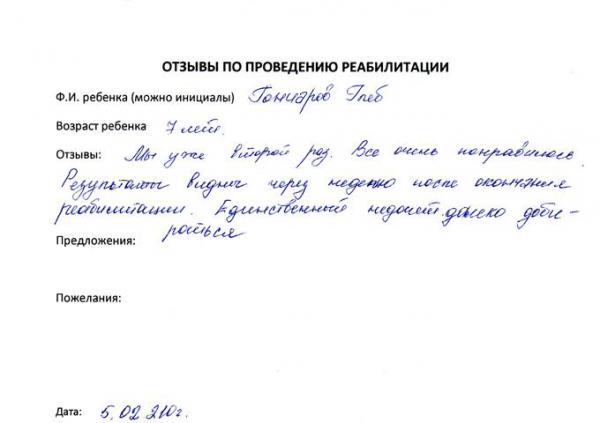 ОТЗЫВЫ ПО ПРОВЕДЕНИЮ РЕАБИЛИТАЦИИ
Ф.И. ребенка (можно инициалы) Гончаров Глеб
Возраст ребенка 7 лет.
Отзывы: Мы уже второй раз. Все очень понравилось
Результаты видны через неделю после окончания
реабилитации. Единственный недочет далеко доби-
раться
Предложения:
Пожелания:
Дата: 5.02.210г.